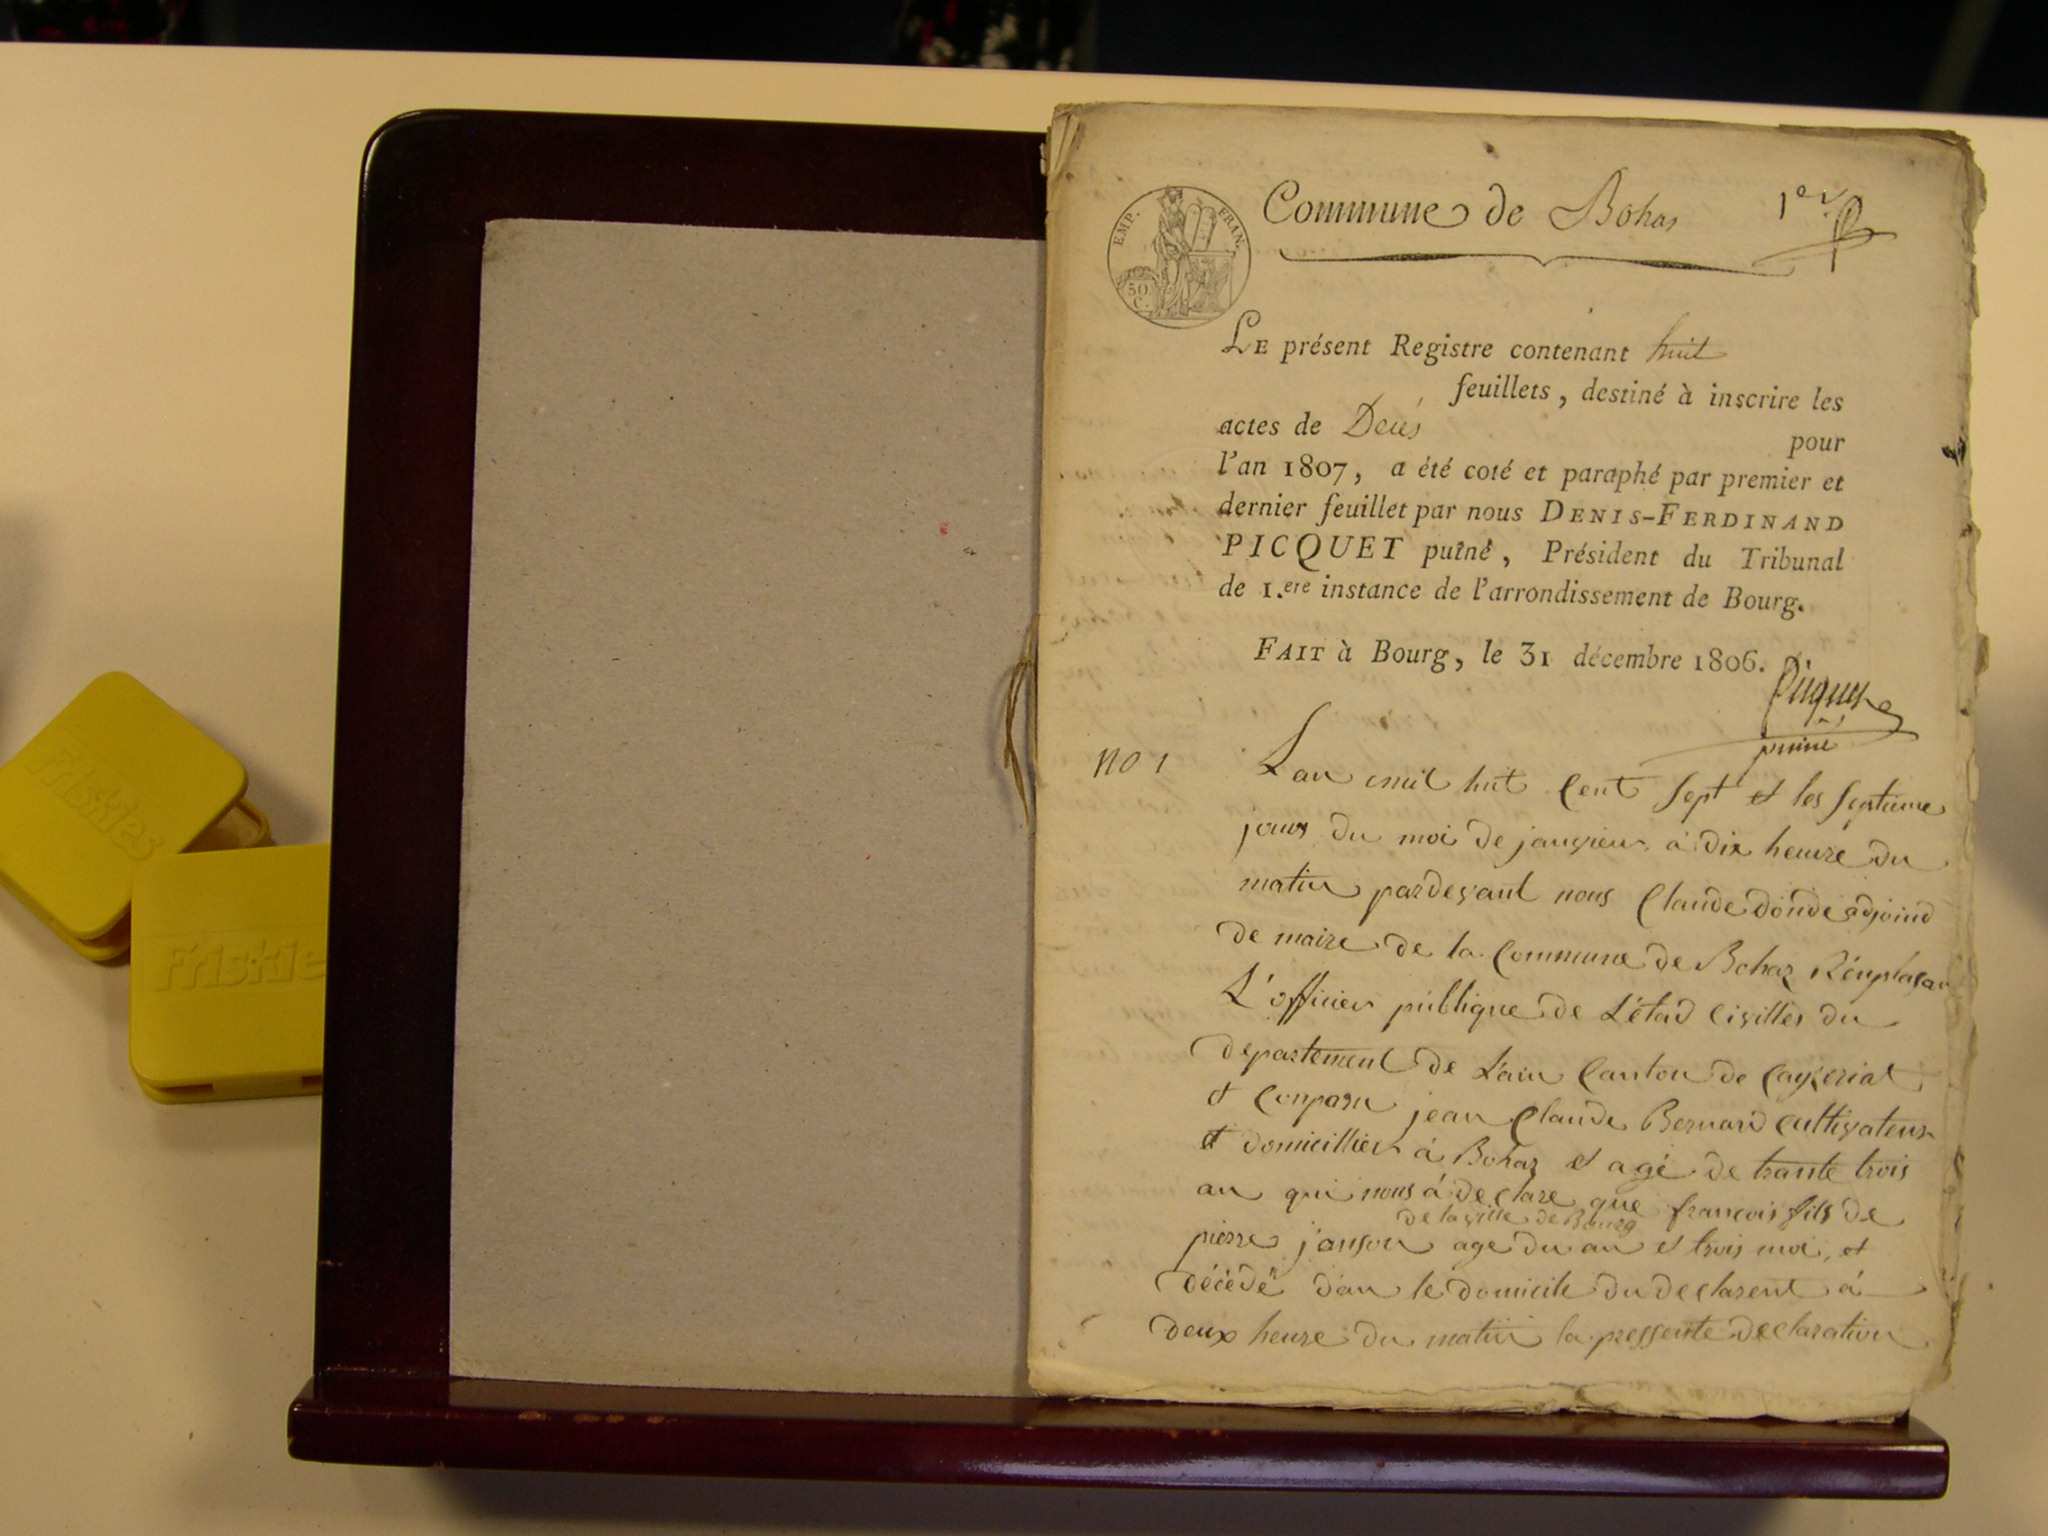 Friskies
Friskie
EMP. FRAN.
50
C.
Commune de Bohas
1er
LE présent Registre contenant huit
feuillets, destiné à inscrire les
actes de Décés pour
l'an 1807, a été coté et paraphé par premier et
dernier feuillet par nous DENIS-FERDINAND
PICQUET puîné, Président du Tribunal
de 1.ere instance de l'arrondissement de Bourg.
FAIT à Bourg, le 31 décembre 1806.
Picquet
puiné
no 1
Lan mil huit Cent Sept et les Septieme
jours du moi de janvier a dix heure du
matin pardevant nous Claude donde adjoind
de maire de la Commune de Bohaz Rénplaçan
L'officier publique de L'étad Civilles du
departement de L'ain Canton de Cayzeriat
et Conparu jean Claude Bernard Cultivateur
et domicillier á Bohaz et agé de trante trois
an qui nous á declare que francois fils de
de la ville de Bourg
pierre janson age du an et trois moi, et
décédé dan le domicile du declarent á
deux heure du matin la pressente declaration